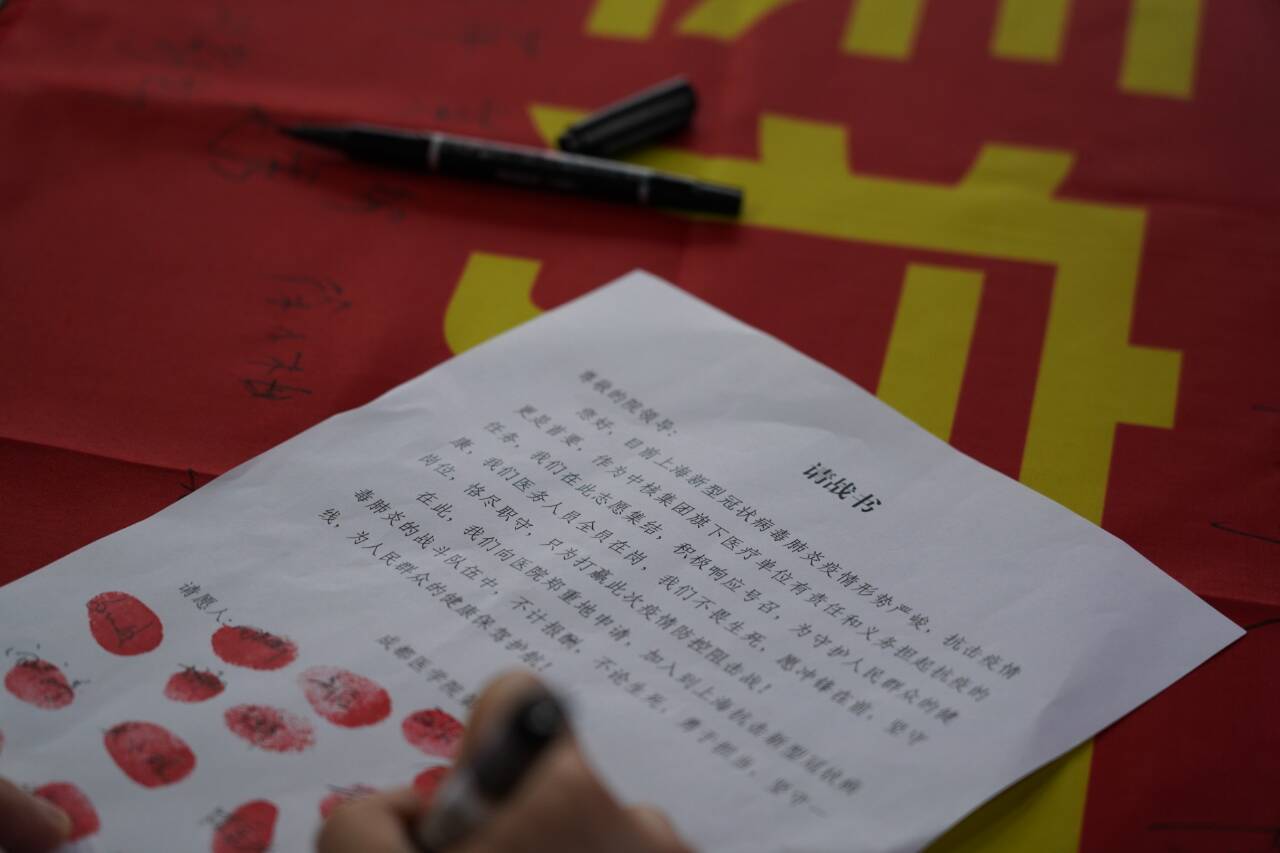 请战书
尊敬的院领导：
您好，目前上海新型冠状病毒肺炎疫情形势严峻，抗击疫情
更是首要，作为中核集团旗下医疗单位有责任和义务担起抗疫的
任务，我们在此志愿集结，积极响应号召，为守护人民群众的健
康，我们医务人员全员在岗，我们不畏生死，愿冲锋在前，坚守
岗位，恪尽职守，只为打赢此次疫情防控阻击战！
在此，我们向医院郑重地申请，加入到上海抗击新型冠状病
毒肺炎的战斗队伍中，不计报酬，不论生死，勇于担当，坚守一
线，为人民群众的健康保驾护航！
成都医学院
请愿人：